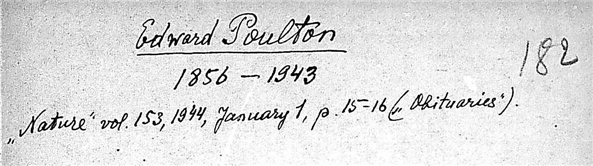 Edward Poulton
182
1856 – 1943
„Nature" vol. 153, 1944, January 1, p. 15-16 („Obituaries").